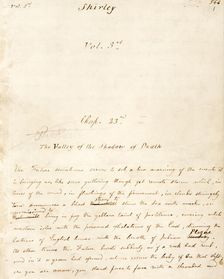 Vol. 3d
Shirley
Vol. 3rd
Chap. 23rd
The Valley of the Shadow of Death
The Future sometimes seems to sob a low warning of the events it
is bringing us, like some gathering though yet remote storm, which, in
tones of the wind, in flushings of the firmament, in clouds strangely
torn, announces a blast strong to strew the sea with wrecks; or
bring in fog the yellow taint of pestilence, covering white
western isles with the poisoned exhalations of the East, the
lattices of English homes with the breath of Indian plague.
At other times this Future bursts suddenly, as if a rock had rent,
and in it a grave had opened, whence issues the body of one that slept.
you are aware, you stand face to face with a shrouded